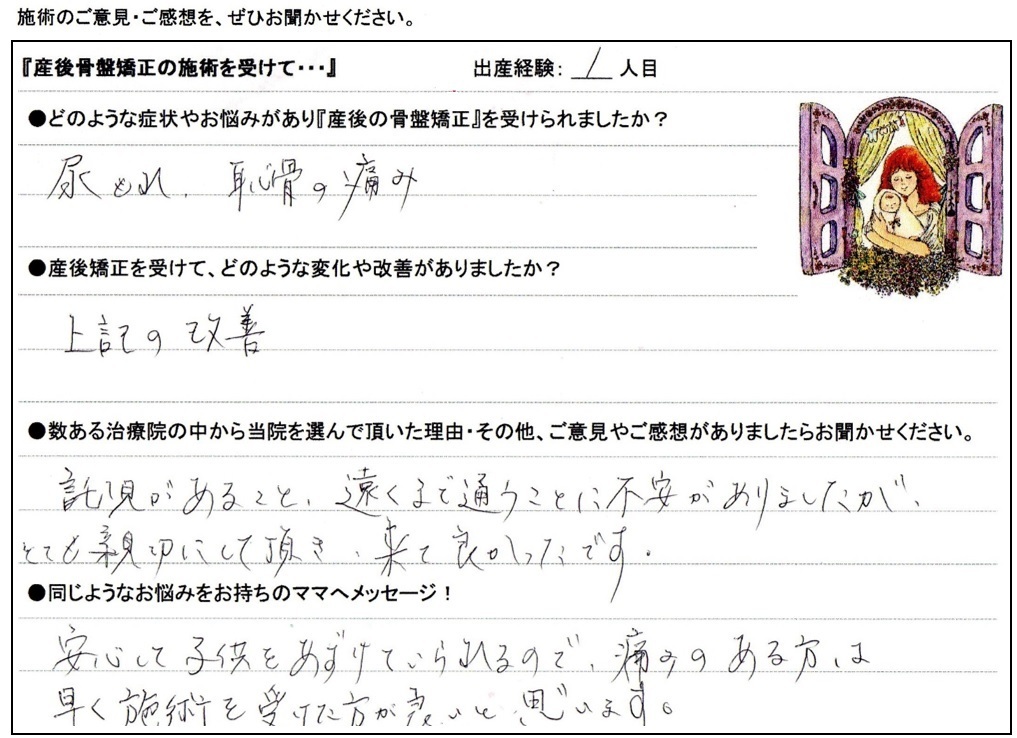 施術のご意見・ご感想を、ぜひお聞かせください。
『産後骨盤矯正の施術を受けて・・・』 出産経験： 1 人目
●どのような症状やお悩みがあり『産後の骨盤矯正』を受けられましたか？
尿もれ、恥骨の痛み
●産後矯正を受けて、どのような変化や改善がありましたか？
上記の改善
●数ある治療院の中から当院を選んで頂いた理由・その他、ご意見やご感想がありましたらお聞かせください。
託児があること、遠くまで通うことに不安がありましたが、
とても親切にして頂き、来て良かったです。
●同じようなお悩みをお持ちのママへメッセージ！
安心して子供をあずけていられるので、痛みのある方は
早く施術を受けた方が良いと思います。